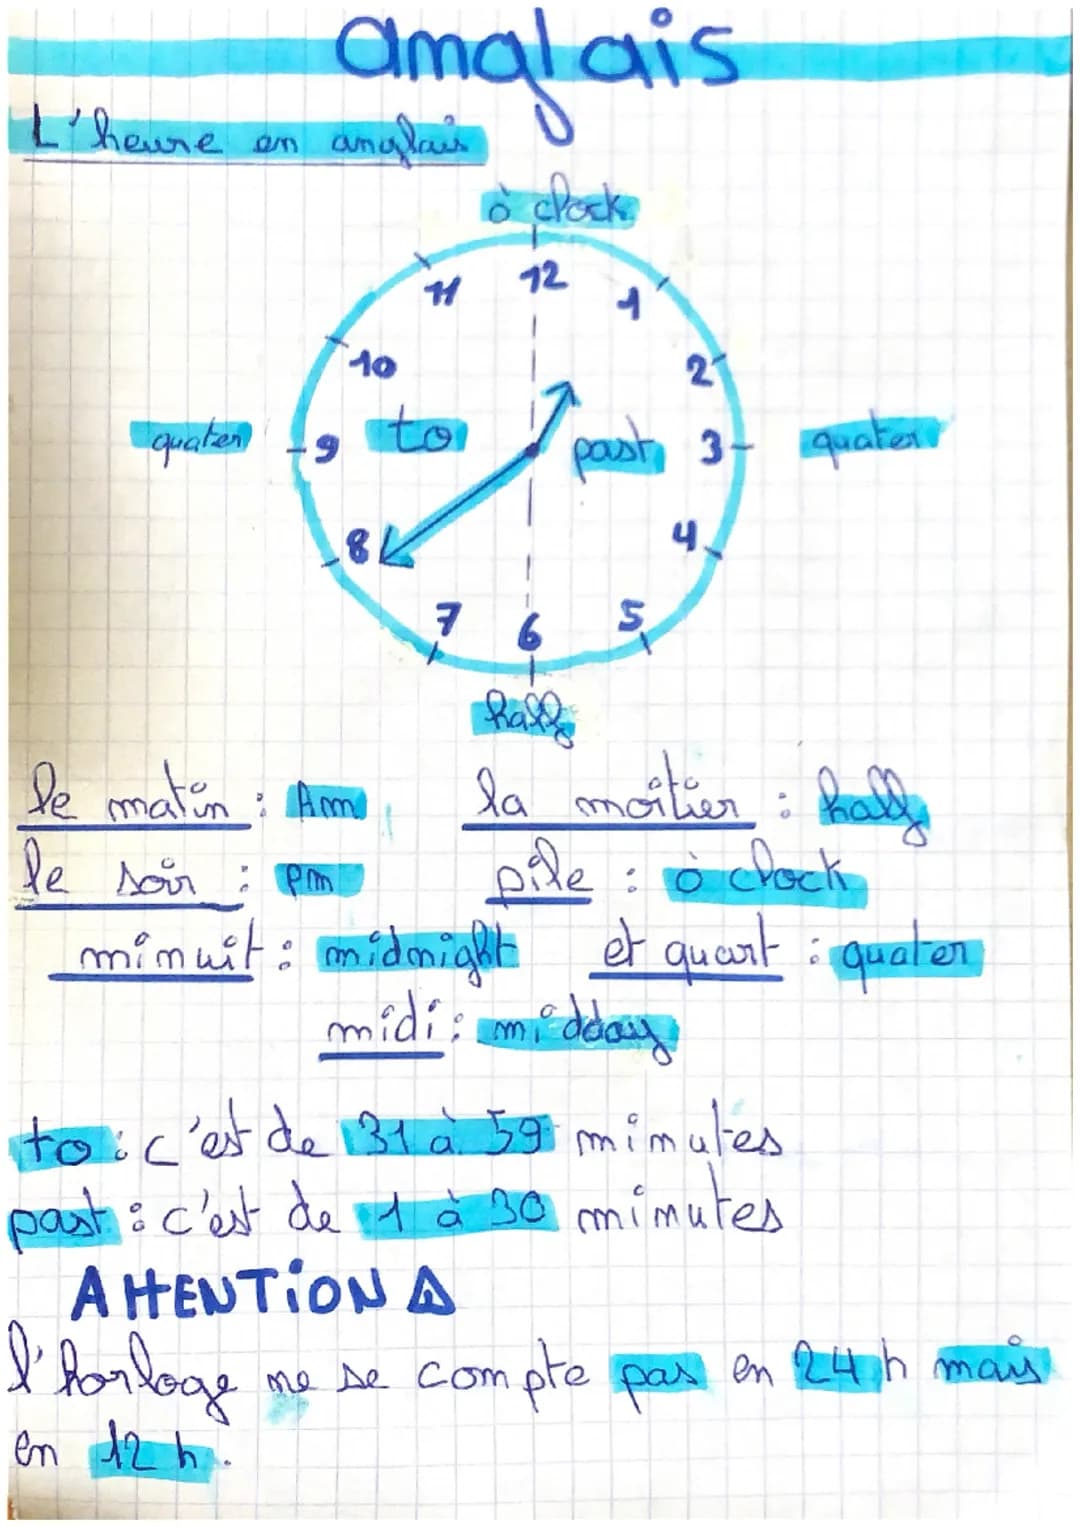 anglais
L'heure en anglais
ò clock
11 12 1
10 2
quater 9 to past 3 quater
8 4
7 6 5
half
le matin : Am la moitier : half
le soir : pm pile : ò clock
minuit : midnight et quart : quater
midi : midday
to : c'est de 31 à 59 minutes
past : c'est de 1 à 30 minutes
ATTENTION ⚠
l'horloge ne se compte pas en 24 h mais
en 12 h.